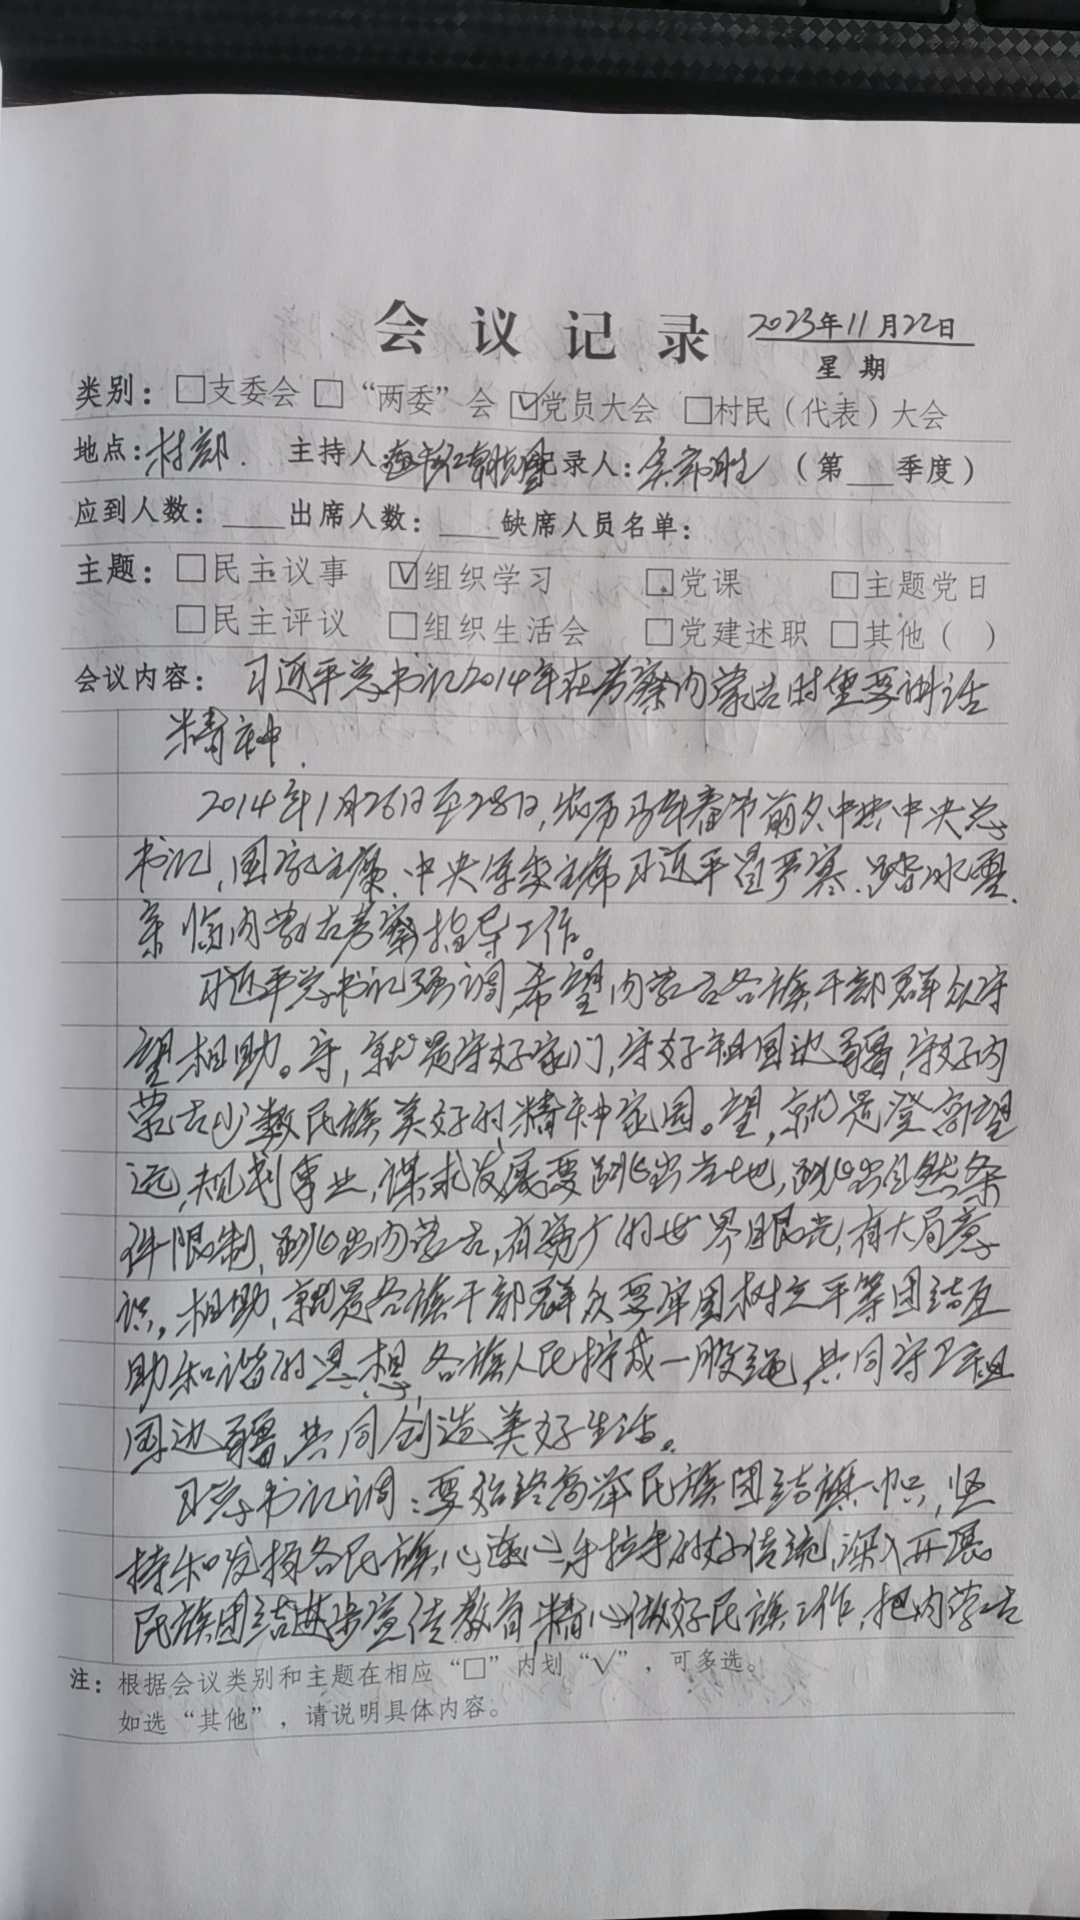 会议记录 2023年11月22日
星期
类别：□支委会 □“两委”会 ☑党员大会 □村民（代表）大会
地点：村部. 主持人 记录人： （第___季度）
应到人数：____出席人数：____缺席人员名单：
主题：□民主议事 ☑组织学习 □党课 □主题党日
□民主评议 □组织生活会 □党建述职 □其他（ ）
会议内容： 习近平总书记2014年在考察内蒙古时重要讲话
精神.
2014年1月26日至28日,农历马年春节前夕中共中央总
书记,国家主席、中央军委主席习近平冒严寒、踏冰雪.
亲临内蒙古考察指导工作。
习近平总书记强调,希望内蒙古各族干部群众守
望相助。守,就是守好家门,守好祖国边疆,守好内
蒙古少数民族美好的精神家园。望,就是登高望
远,规划事业,谋求发展要跳出当地,跳出自然条
件限制,跳出内蒙古,有宽广的世界眼光,有大局意
识。相助,就是各族干部群众要牢固树立平等团结互
助和谐的思想,各族人民拧成一股绳,共同守卫祖
国边疆,共同创造美好生活。
习总书记调：要始终高举民族团结旗帜,坚
持和发扬各民族心连心,手拉手的好传统,深入开展
民族团结进步宣传教育,精心做好民族工作,把内蒙古
注：根据会议类别和主题在相应“□”内划“√”，可多选。
如选“其他”，请说明具体内容。